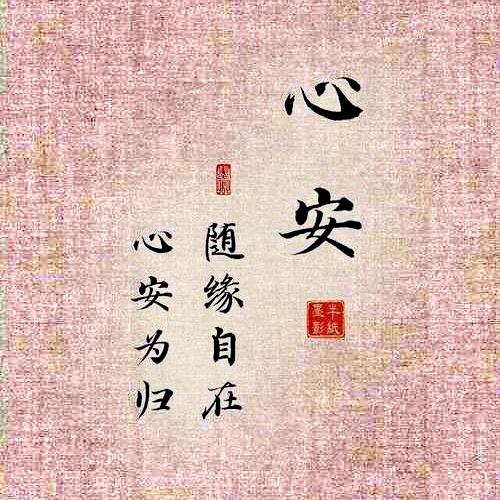 心安
随缘自在
心安为归
半紙
墨影